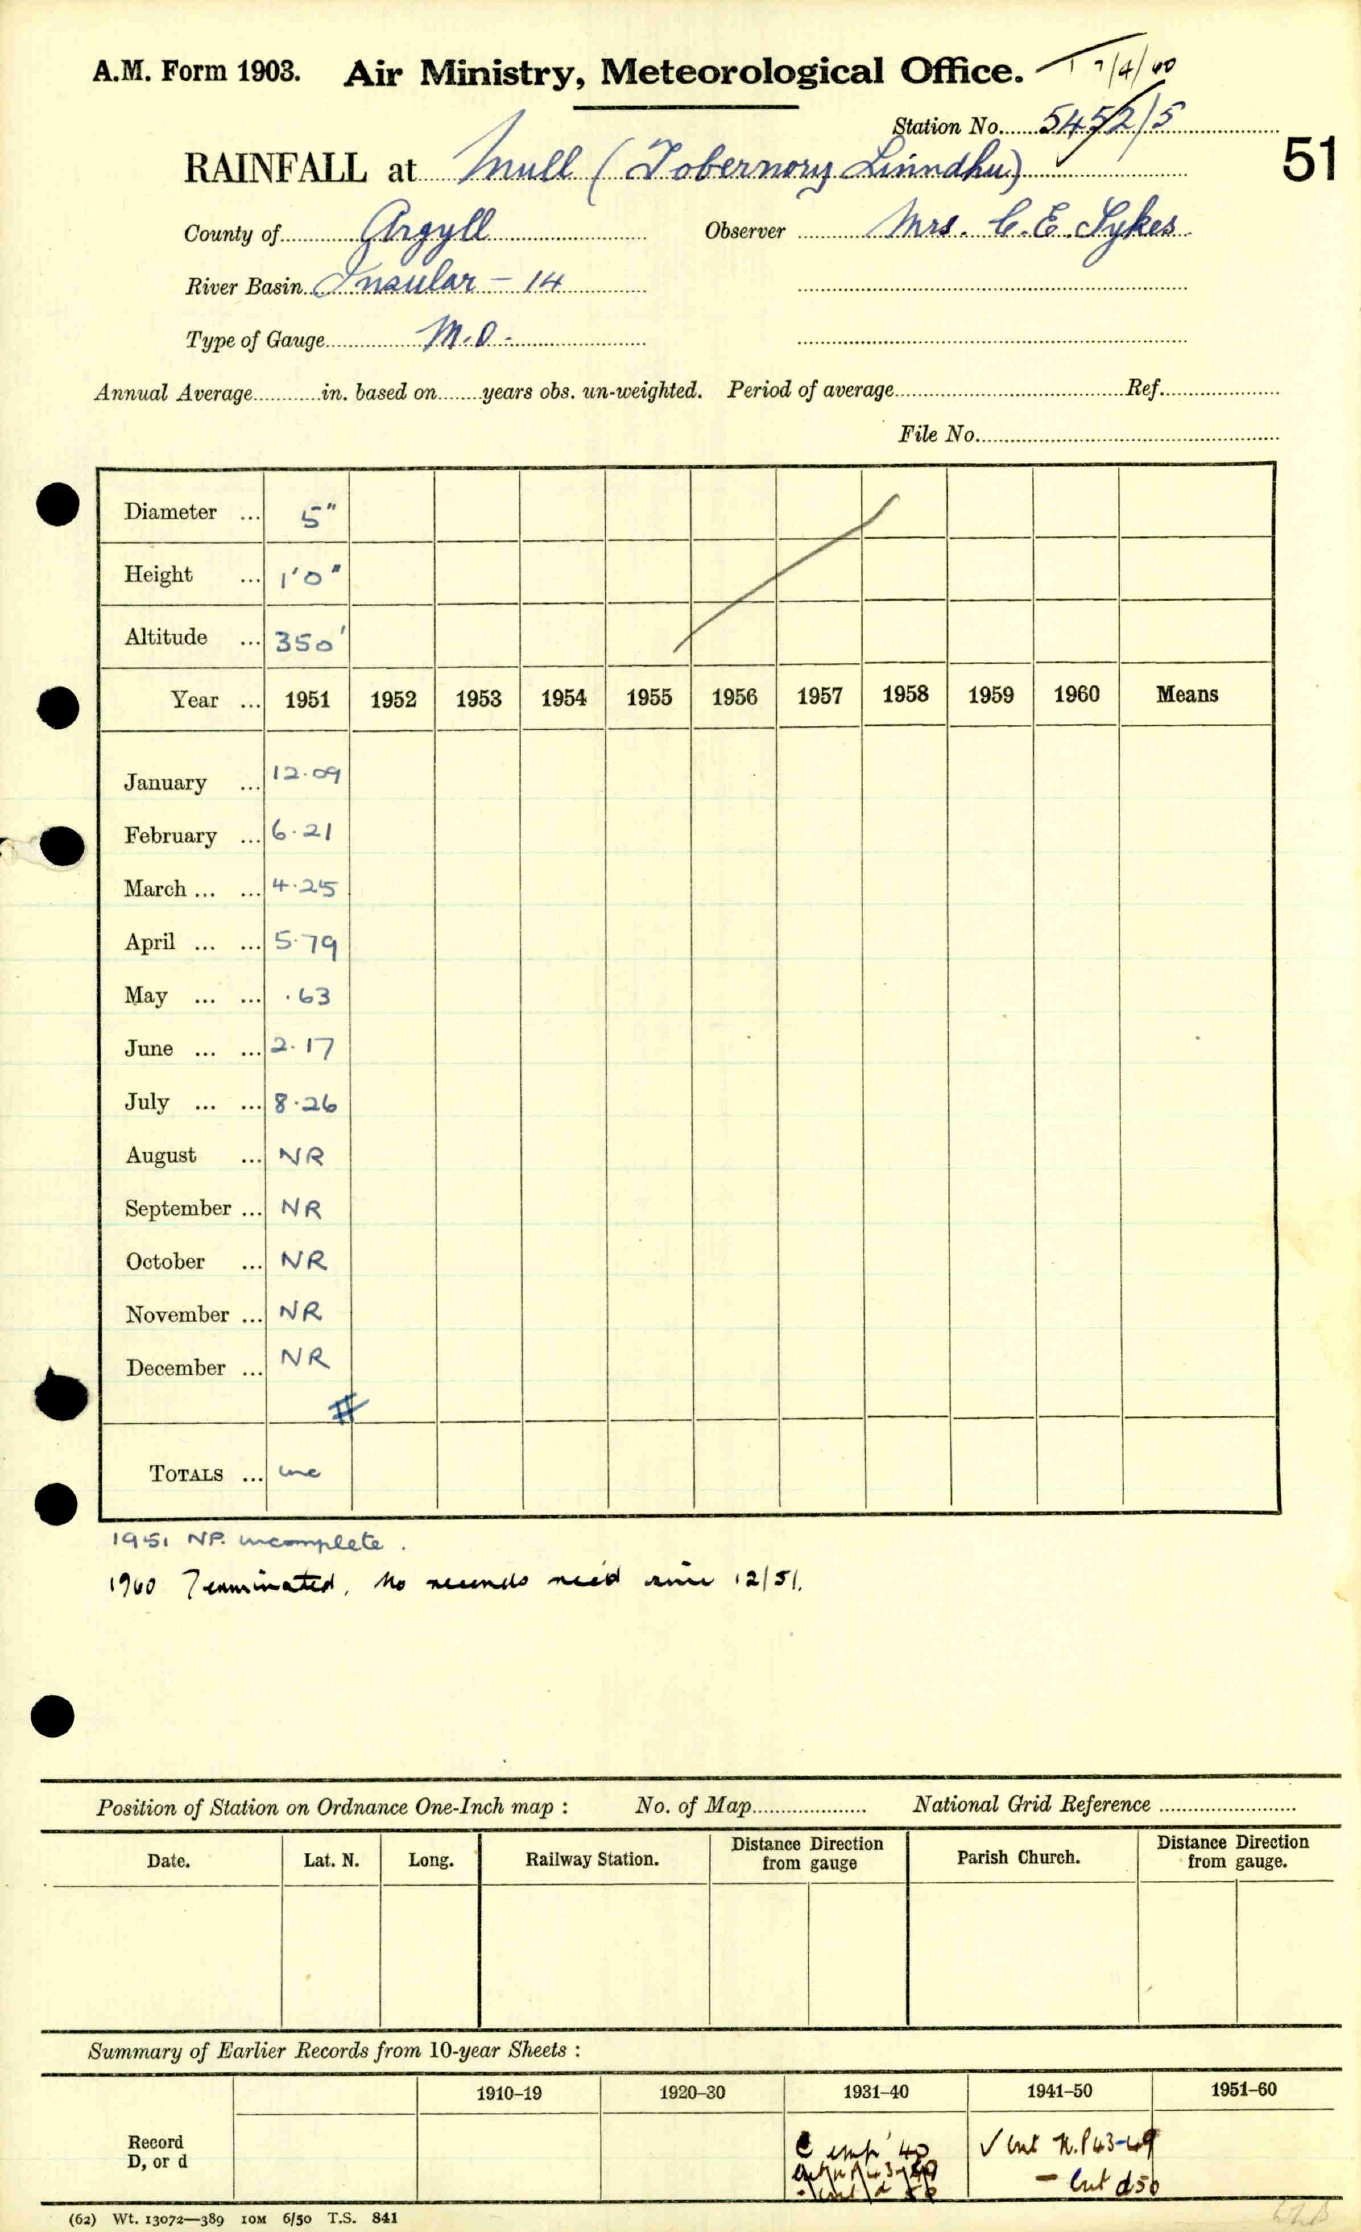 A.M. Form 1903. Air Ministry, Meteorological Office. T 7/4/60
Station No. 5452/5
RAINFALL at Mull (Tobermory, Linndhu) 51
County of Argyll Observer Mrs. C. E. Sykes
River Basin Insular - 14
Type of Gauge M.O.
Annual Average in. based on years obs. un-weighted. Period of average Ref.
File No.
Diameter ... 5"
Height ... 1'0"
Altitude ... 350'
Year ... 1951 1952 1953 1954 1955 1956 1957 1958 1959 1960 Means
January ... 12.09
February ... 6.21
March ... ... 4.25
April ... ... 5.79
May ... ... .63
June ... ... 2.17
July ... ... 8.26
August ... NR
September ... NR
October ... NR
November ... NR
December ... NR
#
TOTALS ... inc
1951 NP. incomplete.
1960 Terminated. No records rec'd since 12/51.
Position of Station on Ordnance One-Inch map : No. of Map National Grid Reference
Date. Lat. N. Long. Railway Station. Distance Direction from gauge Parish Church. Distance Direction from gauge.
Summary of Earlier Records from 10-year Sheets :
1910–19 1920–30 1931–40 1941–50 1951–60
Record
D, or d
40 √ int N.P 43-49
- int d 50
(62) Wt. 13072—389 10M 6/50 T.S. 841